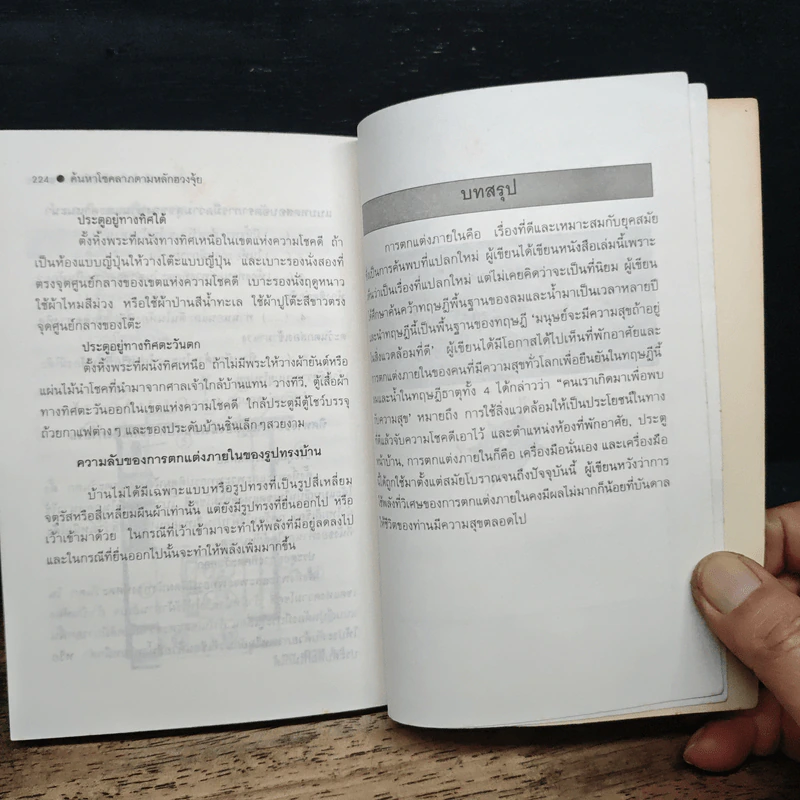 224 ● ค้นหาโชคลาภตามหลักฮวงจุ้ย
ประตูอยู่ทางทิศใต้
ตั้งหิ้งพระที่ผนังทางทิศเหนือในเขตแห่งความโชคดี ถ้า
เป็นห้องแบบญี่ปุ่นให้วางโต๊ะแบบญี่ปุ่น และเบาะรองนั่งสองที่
ตรงจุดศูนย์กลางของเขตแห่งความโชคดี เบาะรองนั่งฤดูหนาว
ใช้ผ้าไหมสีม่วง หรือใช้ผ้าป่านสีน้ำทะเล ใช้ผ้าปูโต๊ะสีขาวตรง
จุดศูนย์กลางของโต๊ะ
ประตูอยู่ทางทิศตะวันตก
ตั้งหิ้งพระที่ผนังทิศเหนือ ถ้าไม่มีพระให้วางผ้ายันต์หรือ
แผ่นไม้นำโชคที่นำมาจากศาลเจ้าใกล้บ้านแทน วางทีวี, ตู้เสื้อผ้า
ทางทิศตะวันออกในเขตแห่งความโชคดี ใกล้ประตูมีตู้โชว์บรรจุ
ถ้วยกาแฟต่างๆ และของประดับบ้านชิ้นเล็กๆสวยงาม
ความลับของการตกแต่งภายในของรูปทรงบ้าน
บ้านไม่ได้มีเฉพาะแบบหรือรูปทรงที่เป็นรูปสี่เหลี่ยม
จตุรัสหรือสี่เหลี่ยมผืนผ้าเท่านั้น แต่ยังมีรูปทรงที่ยื่นออกไป หรือ
เว้าเข้ามาด้วย ในกรณีที่เว้าเข้ามาจะทำให้พลังที่มีอยู่ลดลงไป
และในกรณีที่ยื่นออกไปนั้นจะทำให้พลังเพิ่มมากขึ้น
บทสรุป
การตกแต่งภายในคือ เรื่องที่ดีและเหมาะสมกับยุคสมัย
เป็นการค้นพบที่แปลกใหม่ ผู้เขียนได้เขียนหนังสือเล่มนี้เพราะ
ว่าเป็นเรื่องที่แปลกใหม่ แต่ไม่เคยคิดว่าจะเป็นที่นิยม ผู้เขียน
ศึกษาค้นคว้าทฤษฎีพื้นฐานของลมและน้ำมาเป็นเวลาหลายปี
และนำทฤษฎีนี้เป็นพื้นฐานของทฤษฎี 'มนุษย์จะมีความสุขถ้าอยู่
ในสิ่งแวดล้อมที่ดี' ผู้เขียนได้มีโอกาสได้ไปเห็นที่พักอาศัยและ
การตกแต่งภายในของคนที่มีความสุขทั่วโลกเพื่อยืนยันในทฤษฎีนี้
และน้ำในทฤษฎีธาตุทั้ง 4 ได้กล่าวว่า "คนเราเกิดมาเพื่อพบ
ความสุข" หมายถึง การใช้สิ่งแวดล้อมให้เป็นประโยชน์ในทาง
ที่ดีแล้วจับความโชคดีเอาไว้ และตำแหน่งห้องที่พักอาศัย, ประตู
หน้าบ้าน, การตกแต่งภายในก็คือ เครื่องมือนั่นเอง และเครื่องมือ
ได้ถูกใช้มาตั้งแต่สมัยโบราณจนถึงปัจจุบันนี้ ผู้เขียนหวังว่าการ
ใช้พลังที่วิเศษของการตกแต่งภายในคงมีผลไม่มากก็น้อยที่บันดาล
ให้ชีวิตของท่านมีความสุขตลอดไป